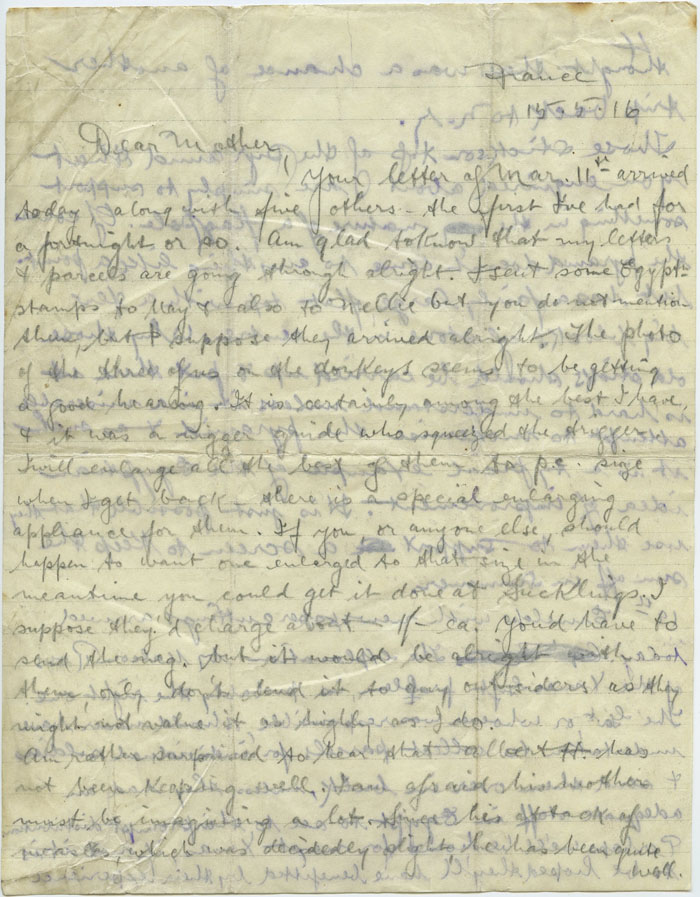 France
15.5.16
Dear Mother,
Your letter of Mar. 11th arrived
today along with five others – the first I've had for
a fortnight or so. Am glad to know that my letters
& parcels are going through alright. I sent some Egyptn
stamps to May & also to Nellie but you do not mention
them, but I suppose they arrived alright. The photo
of the three of us on the donkeys seems to be getting
a good hearing. It is certainly among the best I have,
& it was a nigger guide who squeezed the trigger.
I will enlarge all the best of them to p.c. size
when I get back – there is a special enlarging
appliance for them. If you, or anyone else, should
happen to want one enlarged to that size in the
meantime you could get it done at Sucklings. I
suppose they'd charge about 1/- ea. You'd have to
send the neg. but it would be alright with
them, only don't lend it to any outsiders as they
might not value it as highly as I do.
Am rather surprised to hear that Albert H. has
not been keeping well, & am afraid his mother
must be imagining a lot. Since his attack of
which was decidedly slight he has been quite
well.